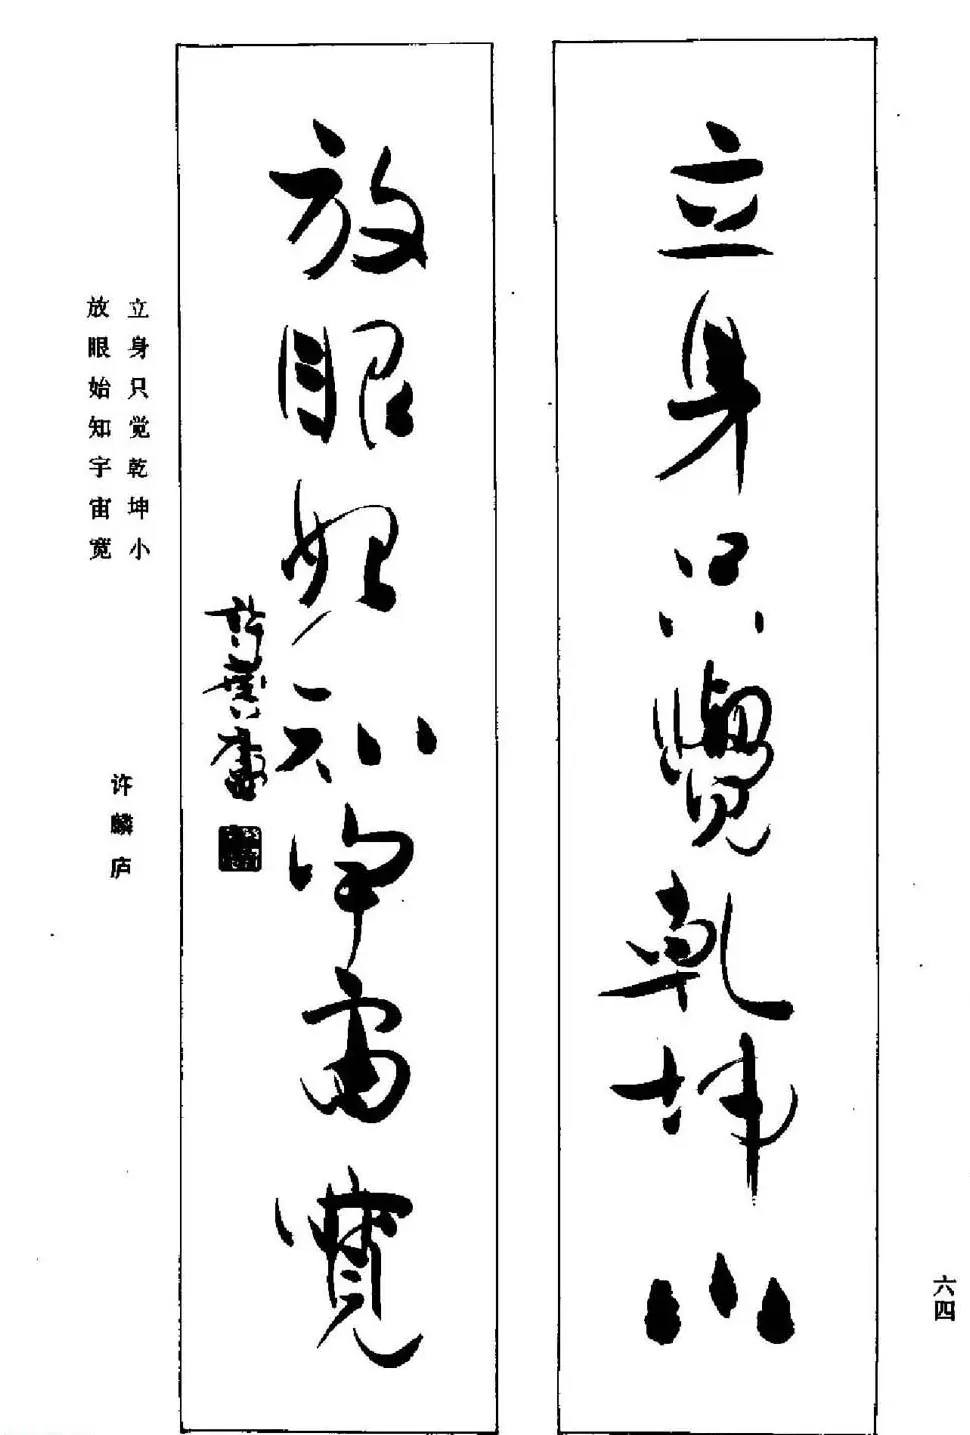 立身只覺乾坤小
放眼始知宇宙寬
許麐廬
立身只觉乾坤小
放眼始知宇宙宽
许麟庐
六四